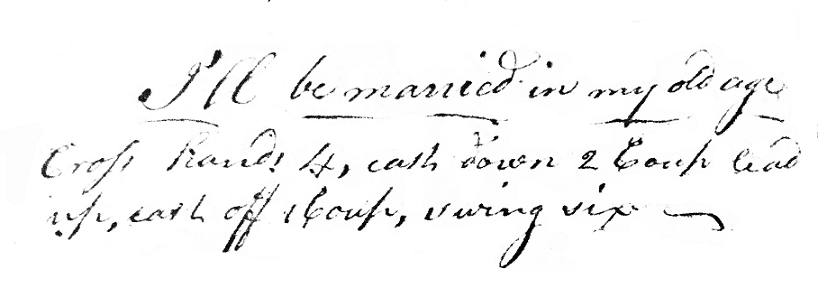 I'll be married in my old age
Cross hands 4, cast down 2 Coup lead
up, cast off 1 Coup, swing six